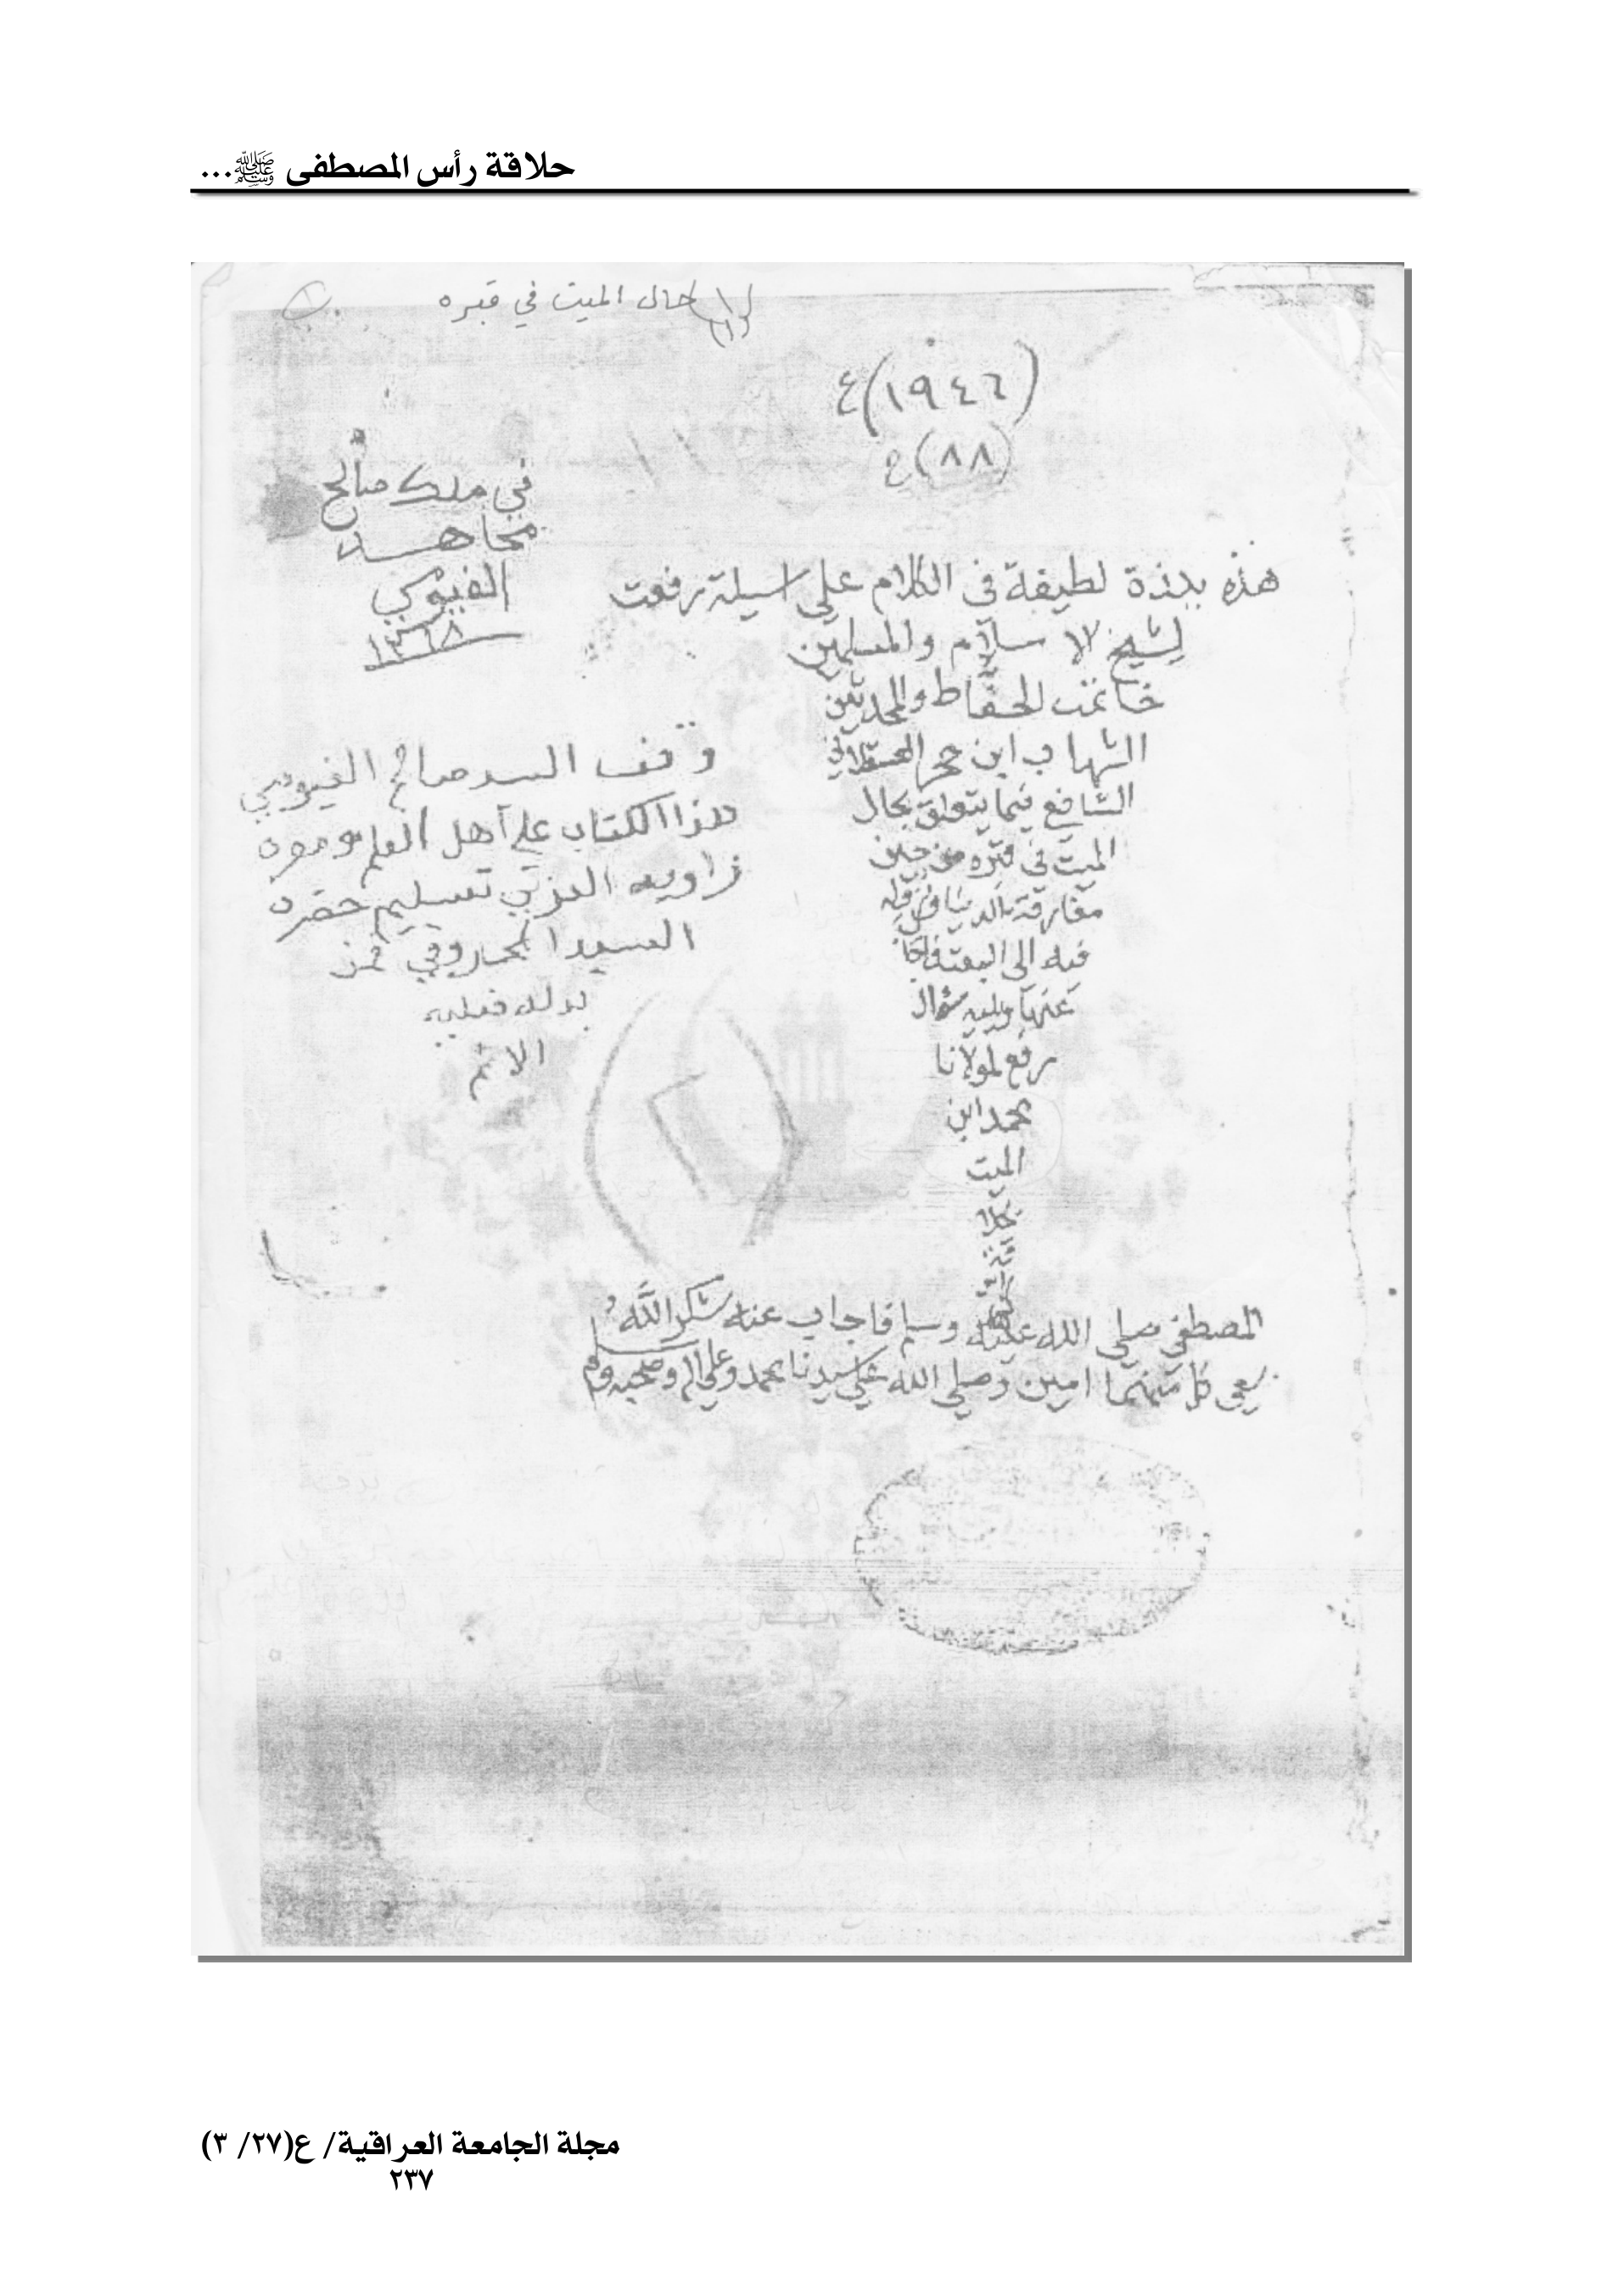 حلاقة رأس المصطفى ﷺ...
(١) حال الميت في قبره
(١٩٤٦) ع
(٨٨) ع
في ملك صالح
مجاهد
الفيومي
١٣٦٨
هذه نبذة لطيفة في الكلام علي اسيلة رفعت
لشيخ الاسلام والمسلمين
خاتمت الحفاظ والمحدثين
الشهاب ابن حجر العسقلاني
الشافع فيما يتعلق بحال
الميت في قبره من حين
مفارقة الدنيا
فيه الى البعثة فاجا
عنها ويليه سؤال
رفع لمولانا
محمد ابن
الميت
بحلا
قة
المصطفي صلي الله عليه وسلم فاجاب عنه شكر الله
سعي كل منهما امين وصلي الله علي سيدنا محمد وعلي اله وصحبه وسلم
وقف السيد صالح الفيومي
هذا الكتاب علي أهل العلم ومقره
زاوية العزي تسليم حضرة
السيد المحروقي فمن
بدله فعليه
الاثم
مجلة الجامعة العراقية/ ع(٢٧/ ٣)
٢٣٧